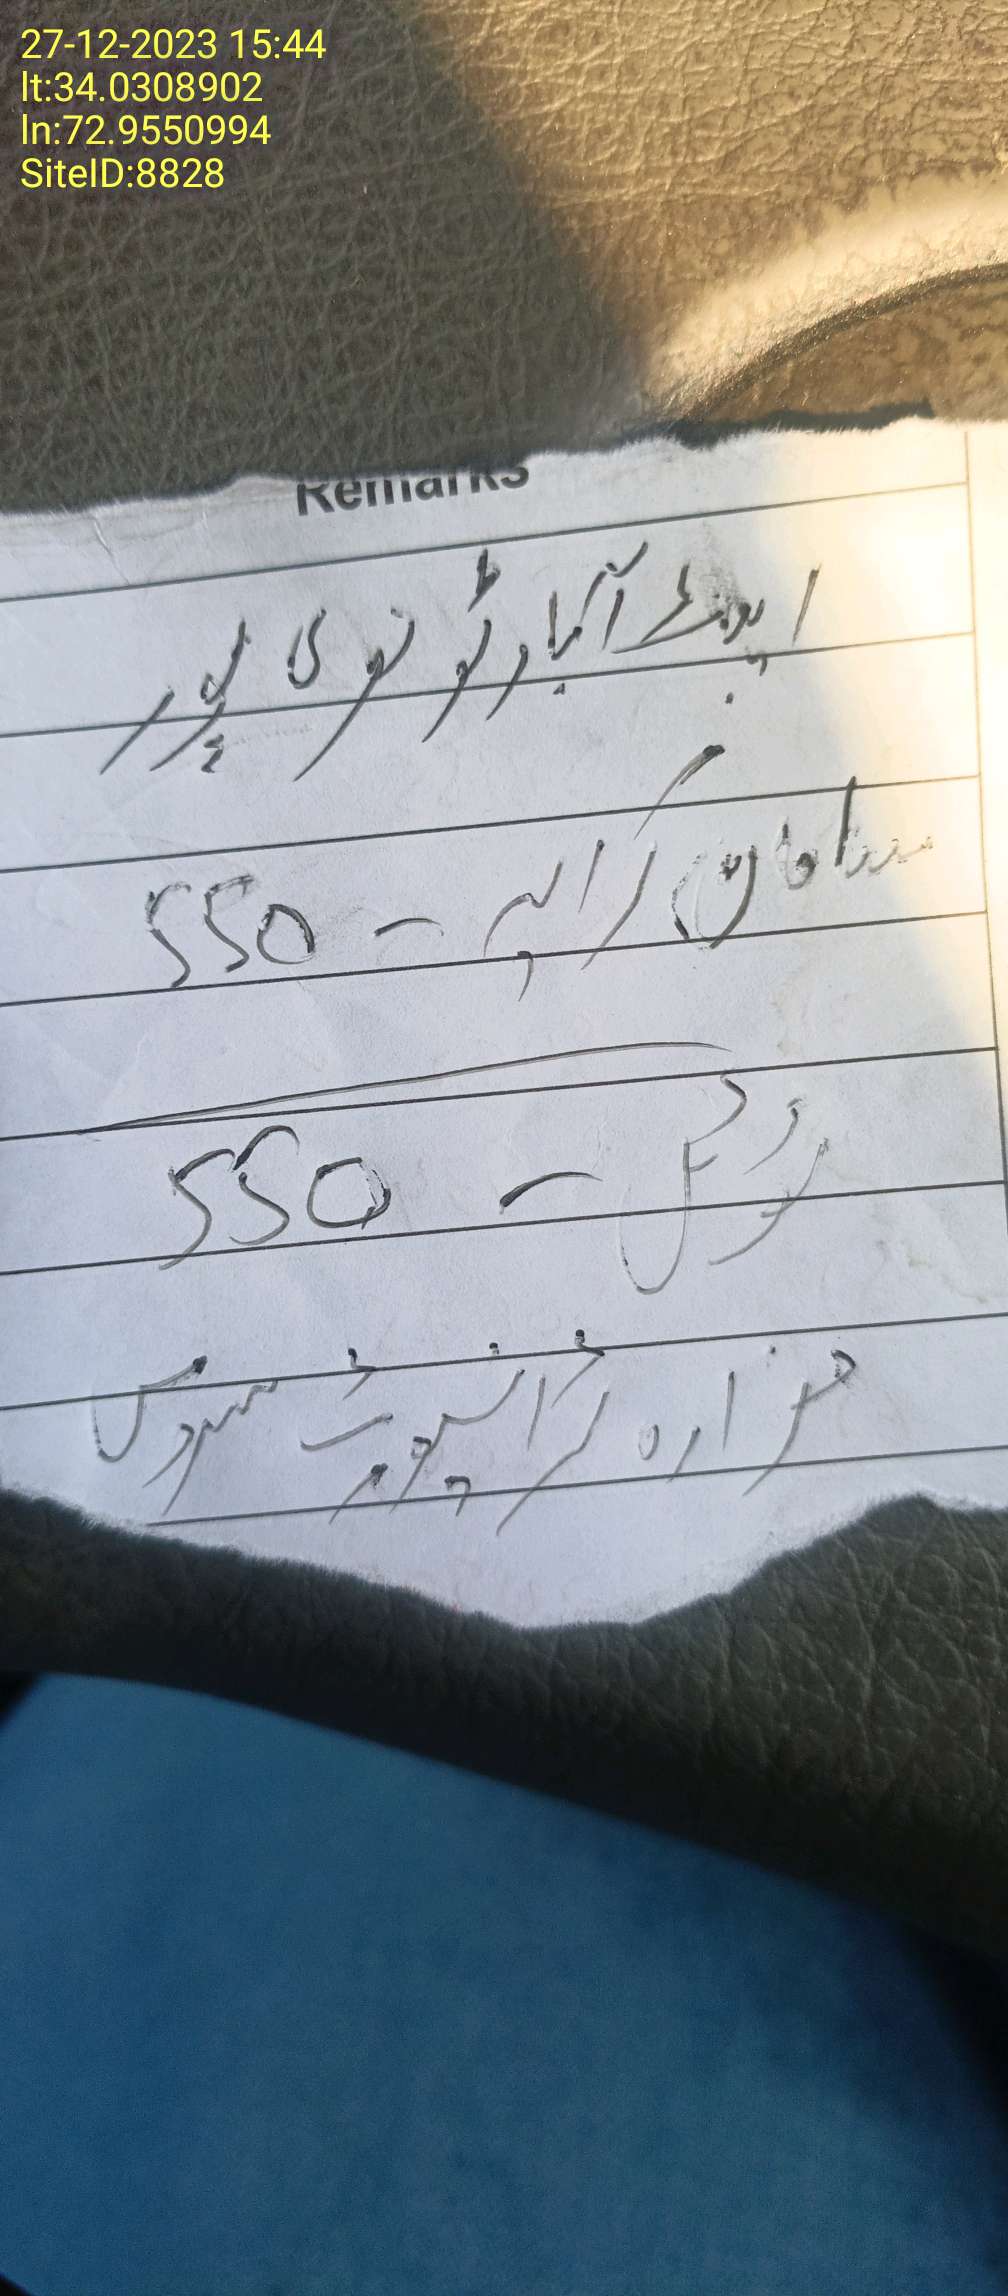 27-12-2023 15:44
lt:34.0308902
ln:72.9550994
SiteID:8828
Remarks
ایبٹ آباد ٹو پور
سامان کرایہ - 550
ٹوٹل - 550
ہزارہ ٹرانسپورٹ سروس